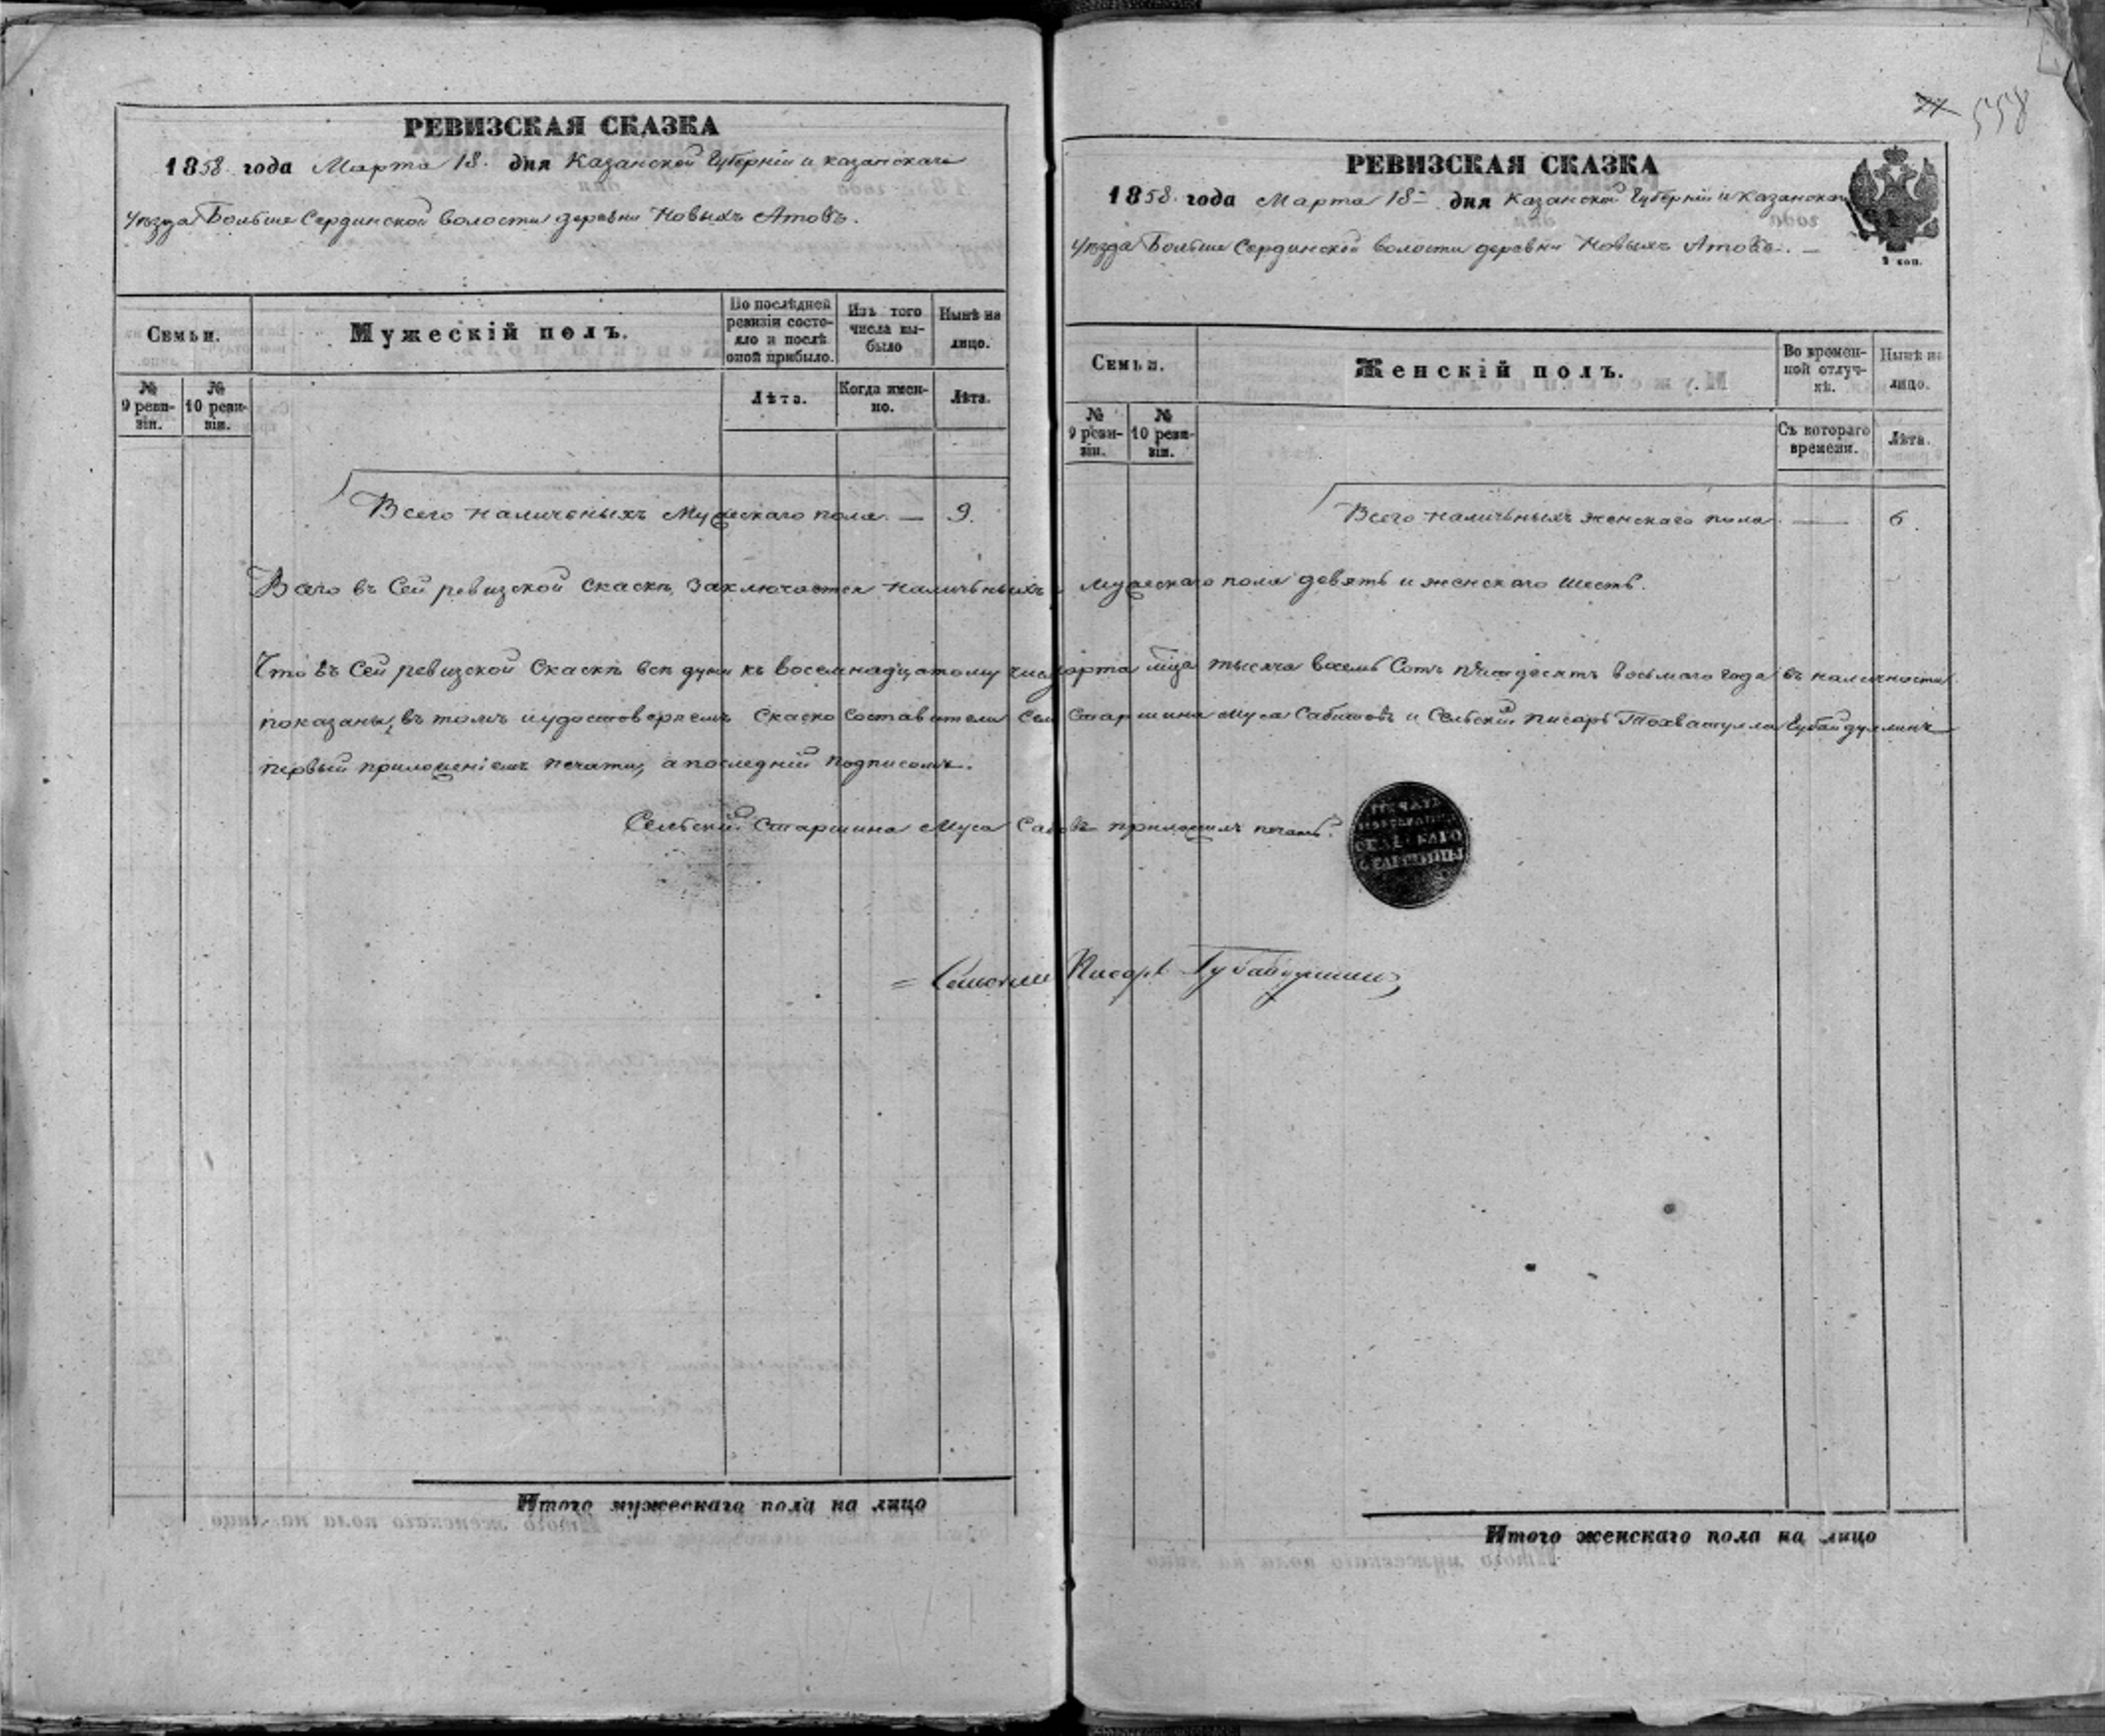 РЕВИЗСКАЯ СКАЗКА
1858. года Марта 18. дня Казанской Губерніи и казанскаго
уѣзда Больше Сердинской волости деревни Новыхъ Атовъ.
Семьи.
Мужескій полъ.
По послѣдней ревизіи состояло и послѣ оной прибыло.
Изъ того числа выбыло
Нынѣ на лицо.
№ 9 ревизіи.
№ 10 ревизіи.
Лѣта.
Когда именно.
Лѣта.
Всего наличныхъ Мужескаго пола. — 9.
558
РЕВИЗСКАЯ СКАЗКА
1858. года Марта 18 дня Казанской Губерніи и Казанскаго
уѣзда Больше Сердинской волости деревни Новыхъ Атовъ. —
2 коп.
Семьи.
Женскій полъ.
Во временной отлучкѣ.
Нынѣ на лицо.
№ 9 ревизіи.
№ 10 ревизіи.
Съ котораго времени.
Лѣта.
Всего наличныхъ женскаго пола. — 6.
въ Сей ревизской скаскѣ заключается наличныхъ мужескаго пола девять и женскаго шесть.
Что въ Сей ревизской Скаскѣ всѣ души къ восемнадцатому марта мца тысяча восемь Сотъ пятдесятъ восьмаго года въ наличности
показаны, въ томъ и удостоверяемъ Скаско составители Сел Старшина Муса Сабитовъ и Сельскій писарь Тохватулла Губайдуллинъ
первый приложеніемъ печати, а последній подписомъ.
Сельский Старшина Муса приложилъ печать.
ПЕЧАТЬ
СЕЛЬСКАГО
СТАРШИНЫ
= Сельский Писарь Губайдуллинъ
Итого мужескаго пола на лицо
Итого женскаго пола на лицо